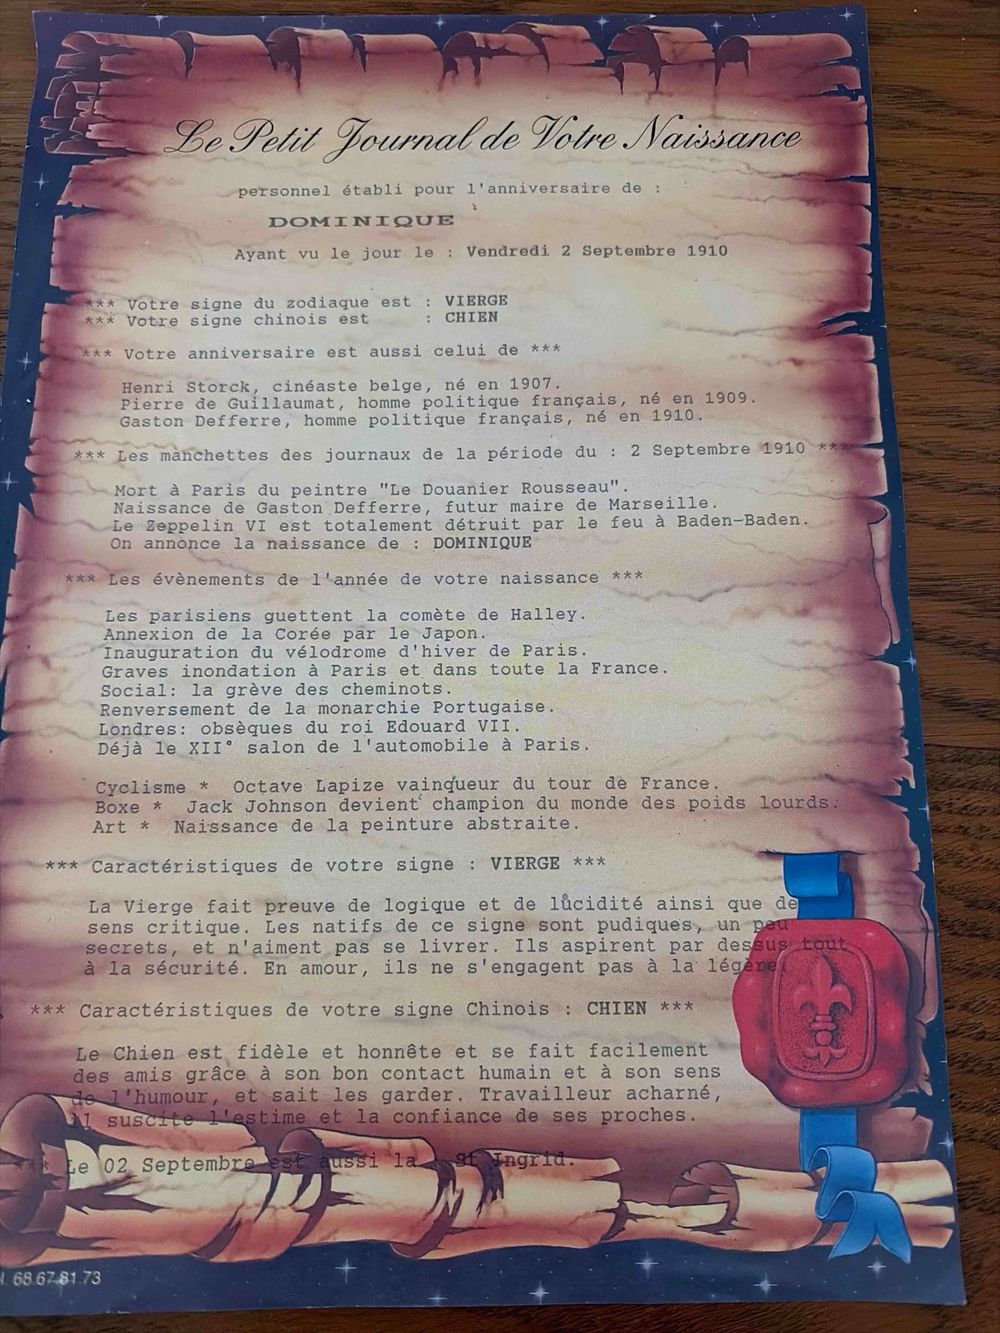 Le Petit Journal de Votre Naissance
personnel établi pour l'anniversaire de :
DOMINIQUE
Ayant vu le jour le : Vendredi 2 Septembre 1910
*** Votre signe du zodiaque est : VIERGE
*** Votre signe chinois est : CHIEN
*** Votre anniversaire est aussi celui de ***
Henri Storck, cinéaste belge, né en 1907.
Pierre de Guillaumat, homme politique français, né en 1909.
Gaston Defferre, homme politique français, né en 1910.
*** Les manchettes des journaux de la période du : 2 Septembre 1910 ***
Mort à Paris du peintre "Le Douanier Rousseau".
Naissance de Gaston Defferre, futur maire de Marseille.
Le Zeppelin VI est totalement détruit par le feu à Baden-Baden.
On annonce la naissance de : DOMINIQUE
*** Les évènements de l'année de votre naissance ***
Les parisiens guettent la comète de Halley.
Annexion de la Corée par le Japon.
Inauguration du vélodrome d'hiver de Paris.
Graves inondation à Paris et dans toute la France.
Social: la grève des cheminots.
Renversement de la monarchie Portugaise.
Londres: obsèques du roi Edouard VII.
Déjà le XII° salon de l'automobile à Paris.
Cyclisme * Octave Lapize vainqueur du tour de France.
Boxe * Jack Johnson devient champion du monde des poids lourds.
Art * Naissance de la peinture abstraite.
*** Caractéristiques de votre signe : VIERGE ***
La Vierge fait preuve de logique et de lucidité ainsi que de
sens critique. Les natifs de ce signe sont pudiques, un peu
secrets, et n'aiment pas se livrer. Ils aspirent par dessus tout
à la sécurité. En amour, ils ne s'engagent pas à la légère.
*** Caractéristiques de votre signe Chinois : CHIEN ***
Le Chien est fidèle et honnête et se fait facilement
des amis grâce à son bon contact humain et à son sens
de l'humour, et sait les garder. Travailleur acharné,
il suscite l'estime et la confiance de ses proches.
*** Le 02 Septembre est aussi la St Ingrid.
68.67.81.73